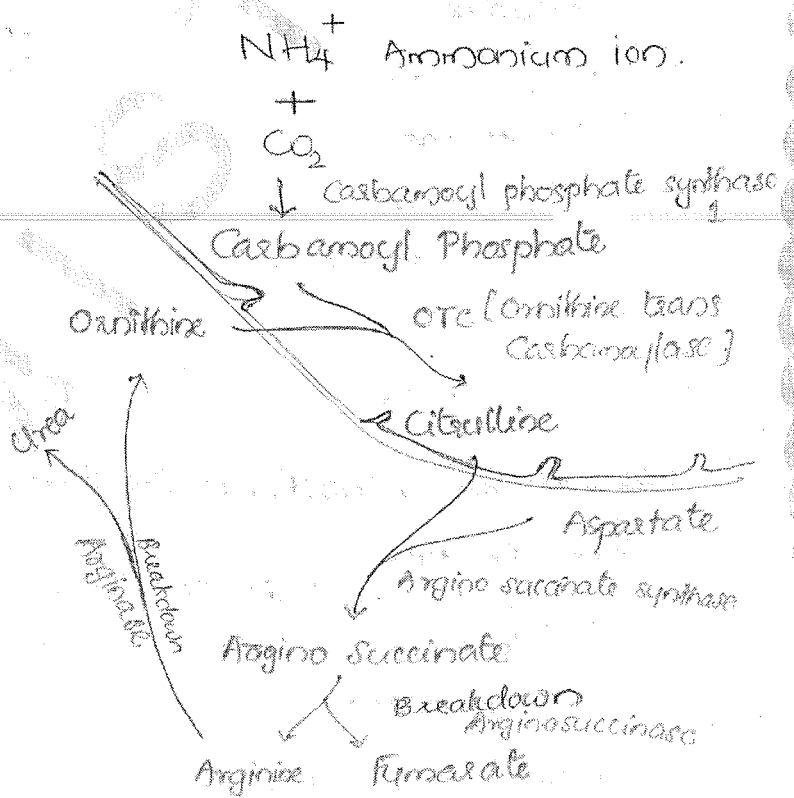 NH4+ Ammonium ion.
+
CO2
Carbamoyl phosphate synthase
1
Carbamoyl Phosphate
Ornithine
OTC [Ornithine trans
Carbamaylase]
Citrulline
Urea
Aspartate
Argino succinate synthase
Breakdown
Arginase
Argino Succinate
Breakdown
Arginosuccinase
Arginine
Fumarate